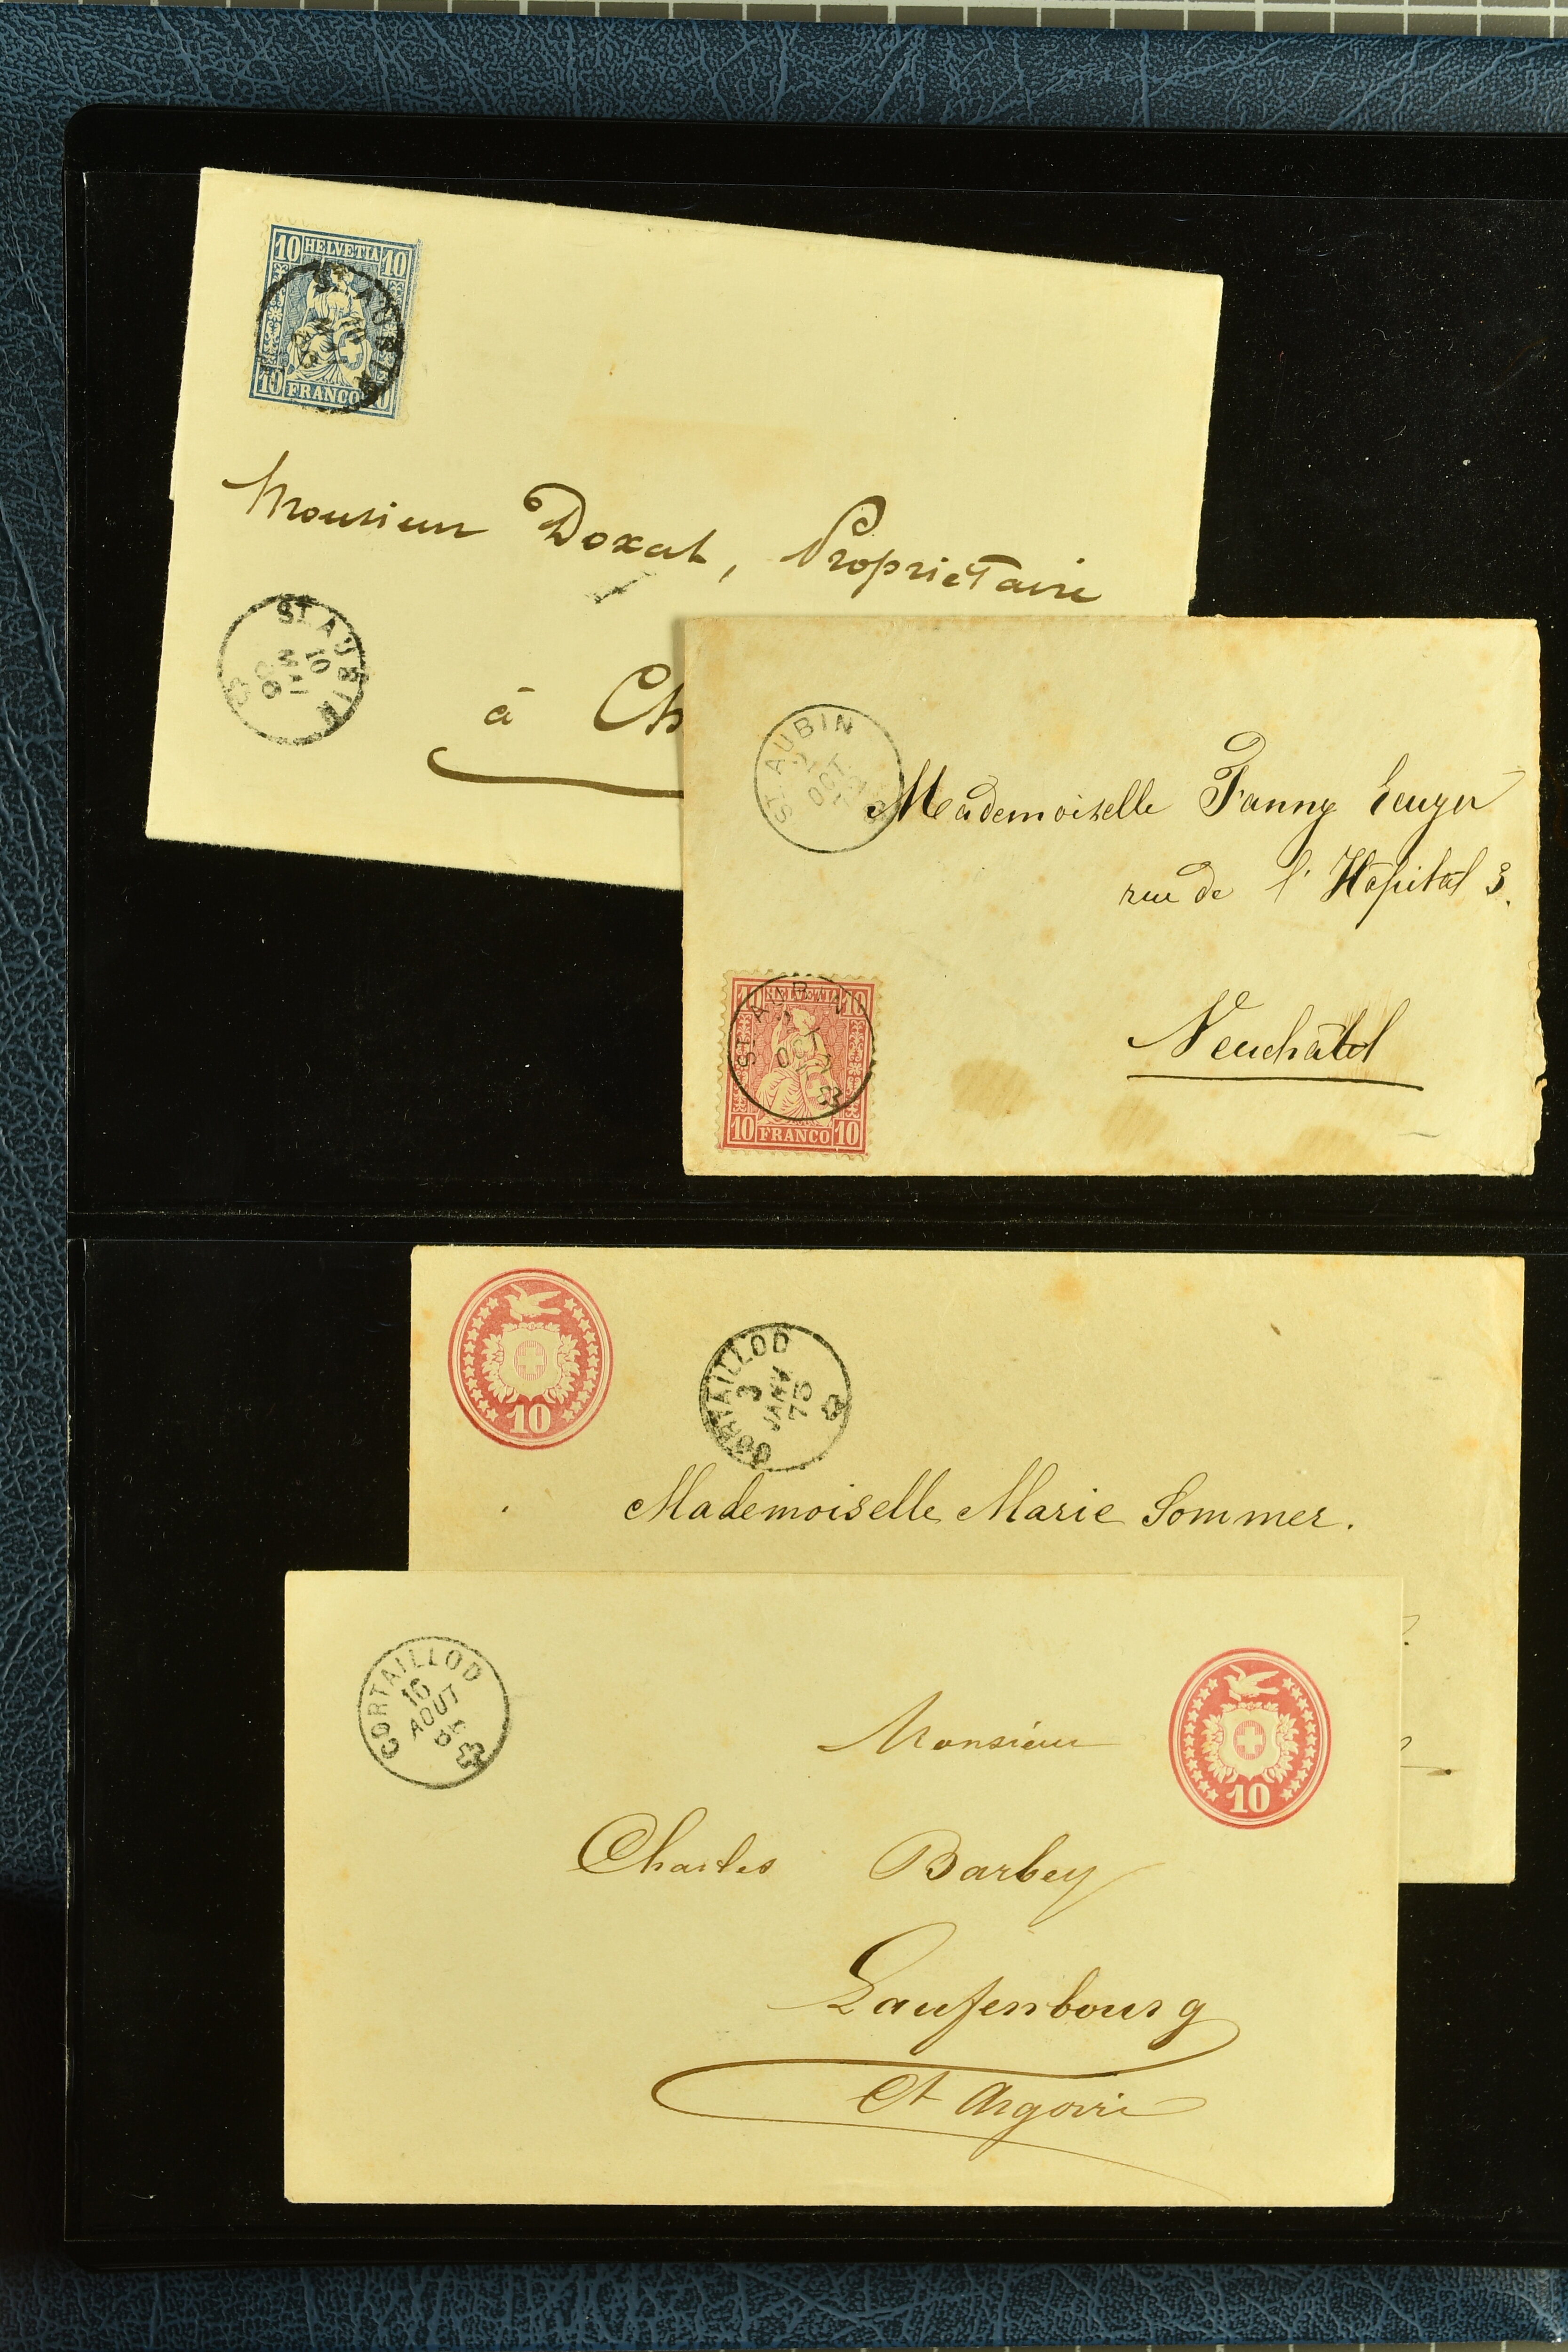 10 HELVETIA 10
10 FRANCO 10
ST. AUBIN
Monsieur Doxat, Propriétaire
ST. AUBIN
10
MAI
à Ch
ST. AUBIN
2
OCT
Mademoiselle Fanny
rue de l'Hôpital 3.
10 HELVETIA 10
ST. AUBIN
OCT
10 FRANCO 10
Neuchâtel
10
CORTAILLOD
3
JANV
75
Mademoiselle Marie Sommer.
CORTAILLOD
16
AOUT
Monsieur
10
Charles Barbey
Laufenbourg
Ct Argovie